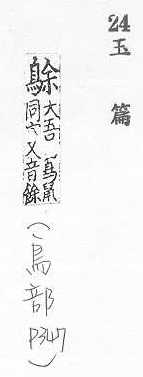 24
玉篇
鵌
大吾
同穴又音餘
(鳥部
P347)